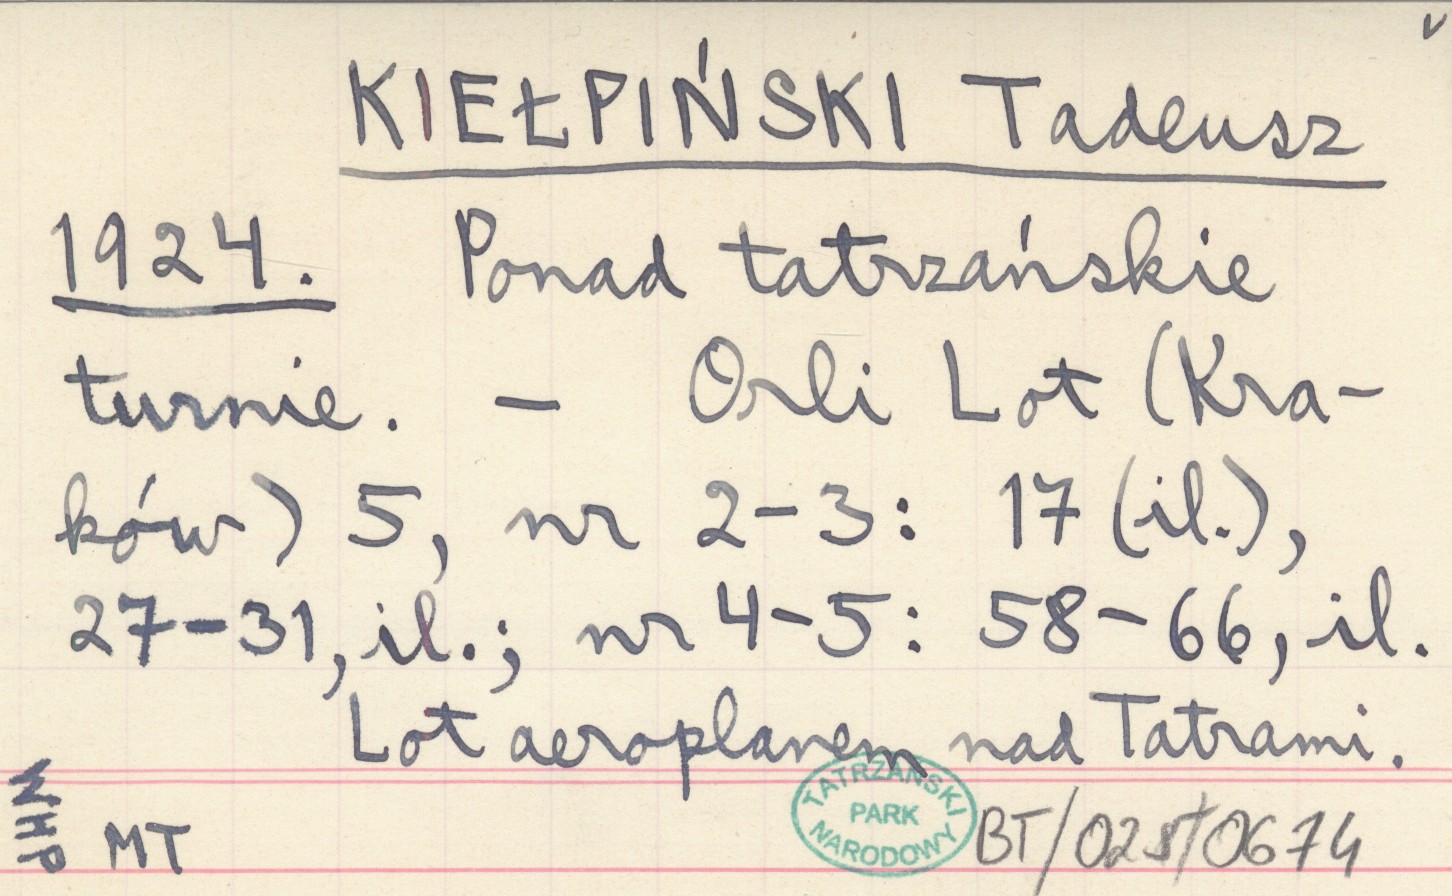 v
KIEŁPIŃSKI Tadeusz
1924. Ponad tatrzańskie
turnie. – Orli Lot (Kra-
ków) 5, nr 2–3: 17 (il.),
27–31, il.; nr 4–5: 58–66, il.
Lot aeroplanem nad Tatrami.
WHP
MT
TATRZAŃSKI
PARK
NARODOWY
BT/025/0674